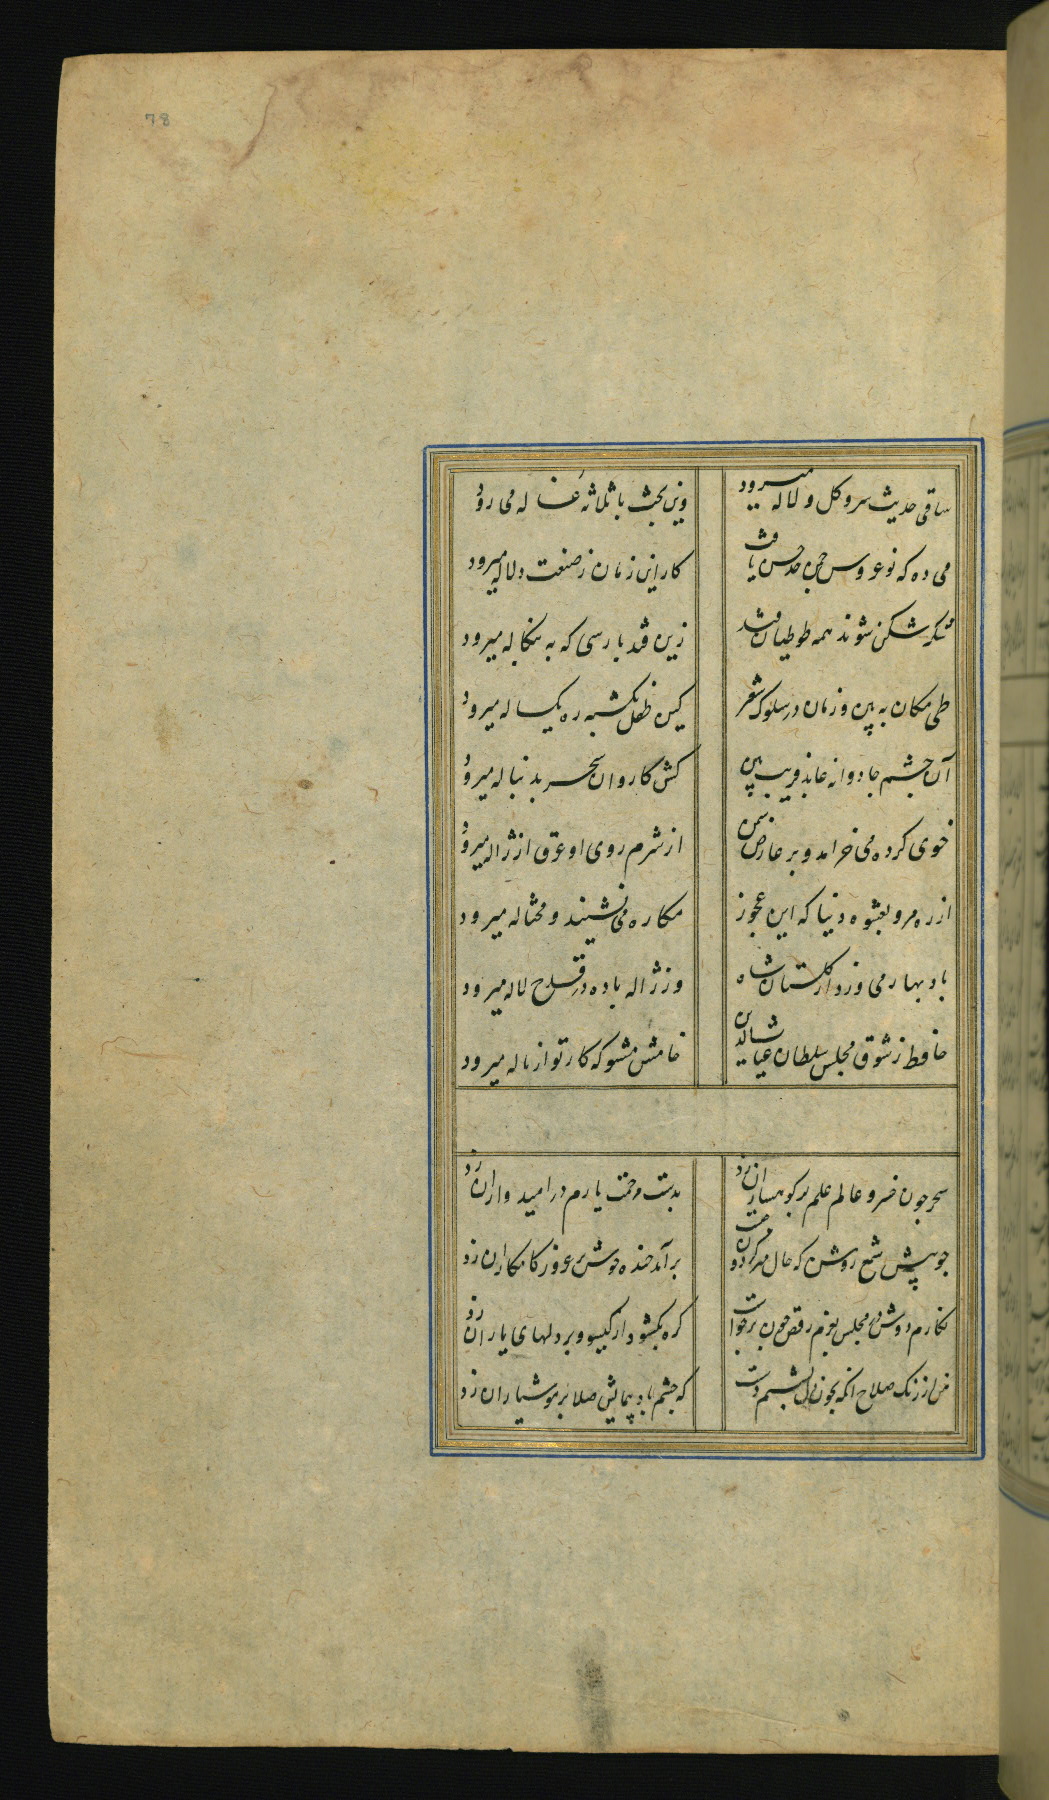 78
ساقی حدیث سرو و کل و لاله میرود وین بحث با ثلاثه غساله می رود
می ده که نو عروس چمن حد حسن یافت کار این زمان ز صنعت دلاله میرود
شکر شکن شوند همه طوطیان هند زین قند پارسی که به بنکاله میرود
طی مکان ببین و زمان در سلوک شعر کین طفل یکشبه ره یکساله میرود
آن چشم جادوانه عابد فریب بین کش کاروان سحر بدنباله میرود
خوی کرده می خرامد و بر عارض سمن از شرم روی او عرق از ژاله میرود
از ره مرو بعشوه دنیا که این عجوز مکاره می نشیند و محتاله میرود
باد بهار می وزد از کلستان شاه وز ژاله باده در قدح لاله میرود
حافظ ز شوق مجلس سلطان غیاث الدین خامش مشو که کار تو از ناله میرود
سحر چون خسرو عالم علم بر کوهساران زد بدست مرحمت یارم در امیدواران زد
چو پیش شمع روشن که حال مهر کردون برآمد خنده خوش بر غرور کامکاران زد
نکارم دوش در مجلس بعزم رقص چون برخواست کره بکشود از کیسو و بر دلهای یاران زد
من از رنک صلاح آنکه بخون دل بشستم دست که چشم باده پیمایش صلا بر هوشیاران زد